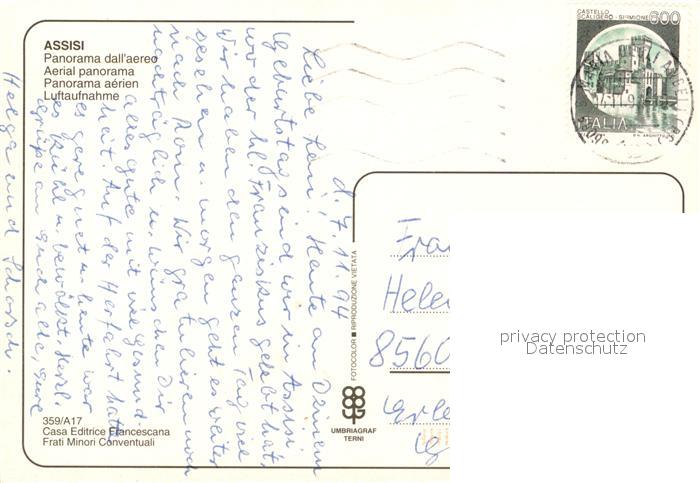 ASSISI
Panorama dall'aereo
Aerial panorama
Panorama aérien
Luftaufnahme
CASTELLO
SCALIGERO - SIRMIONE
600
ITALIA
d. 7.11.94
Liebe Leni! Heute an Deinem
Geburtstag sind wir in Assisi,
wo der hl. Franziskus gelebt hat.
Wir haben den ganzen Tag viel
gesehen u. morgen geht es weiter
nach Rom. Wir gratulieren noch
nachträglich u. wünschen Dir
alles gute mit viel Gesund-
heit. Auf der Herfahrt hatte
es geregnet u. heute war
es kühl u. bewölkt. Herzl.
Grüße an Euch alle, Eure
Helga und Schorsch.
FOTOCOLOR ■ RIPRODUZIONE VIETATA
UMBRIAGRAF
TERNI
Fra
Hele
8560
Erle
privacy protection
Datenschutz
359/A17
Casa Editrice Francescana
Frati Minori Conventuali